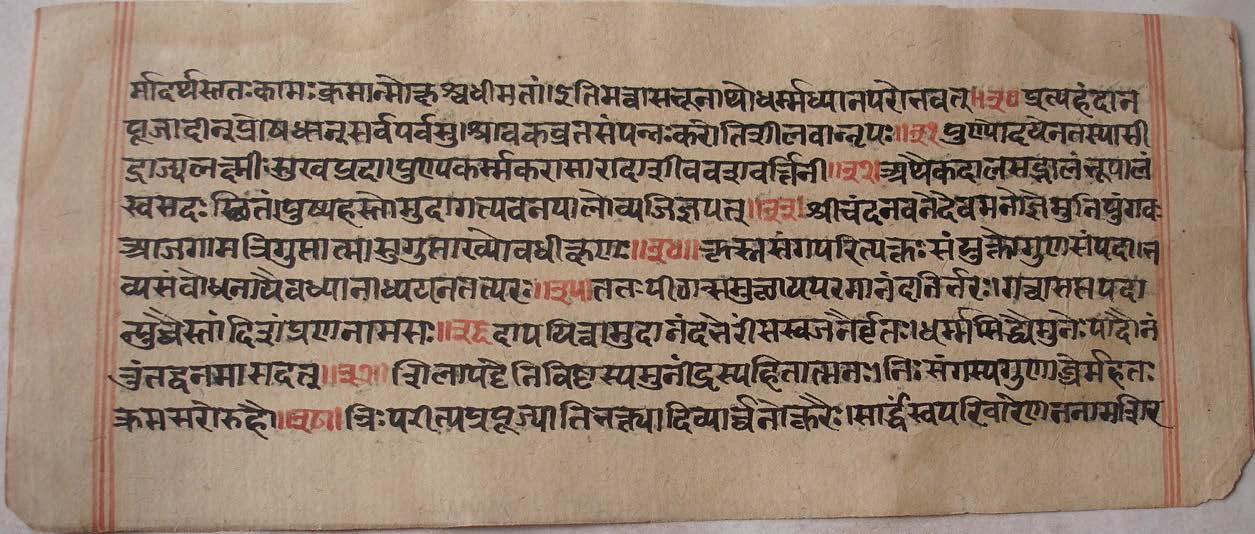 र्मादर्थस्ततःकामःक्रमान्मोक्षश्चधीमतां।इतिमत्वासचूनाथोधर्म्मध्यानपरोनवत्॥३०प्रत्यहंदान
पूजादीन्प्रोषधान्सर्वपर्वसु।श्रावकव्रतसंपन्नःकरोतिशीलवान्नृपः॥३१पुण्योदयेनतस्यासी
द्राज्यलक्ष्मीःसुखप्रदा।पुण्यकर्म्मकरासारादाशीववशवर्त्तिनी॥३२अथैकदालसद्भालंभूपालं
स्वसदःस्थितं।पुष्पहस्तोमुदागत्यवनपालोव्यजिज्ञपत्॥३३।श्रीचंदनवनेदेवमनोज्ञेमुनिपुंगवः
आजगामत्रिगुप्तात्मासुगुप्ताख्योवधीक्षणः॥३४॥कृत्स्नसंगपरित्यक्तःसंयुक्तोगुणसंपदा।न
व्यसंबोधनायैवध्यानाध्ययनतत्परः॥३५।ततःपीठात्समुत्थायपरमानंदनिर्नरः।गत्वासप्तपदा
त्युच्चैस्तांदिशंप्रणनामसः॥३६दापयित्वामुदानंदनेरींसस्वजनैर्वृतः।धर्म्मसिद्ध्यैमुनेःपादौनं
तुंतद्वनमासदत्॥३७॥शिलापट्टेनिविष्टस्यमुनींद्रस्यहितात्मनः।निःसंगस्यगुणाब्धेर्महतः
क्रमसरोरुहौ॥३८॥त्रिःपरीत्यप्रपूज्यातिनक्त्यादिव्यार्च्चनोत्करैः।सार्द्धंस्वपरिवारेणननामशिर